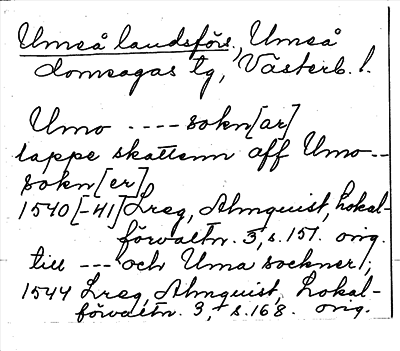 Umeå landsförs., Umeå
domsagas tg, Västerb. l.
Umo ---- sokn[ar]
lappe skattenn aff Umo--
sokn[er]
1540[-41] Lreg, Almquist, Lokal-
förvaltn. 3, s. 151. orig.
till --- och Uma sockner/;
1544 Lreg, Almquist, Lokal-
förvaltn. 3, s. 168. orig.